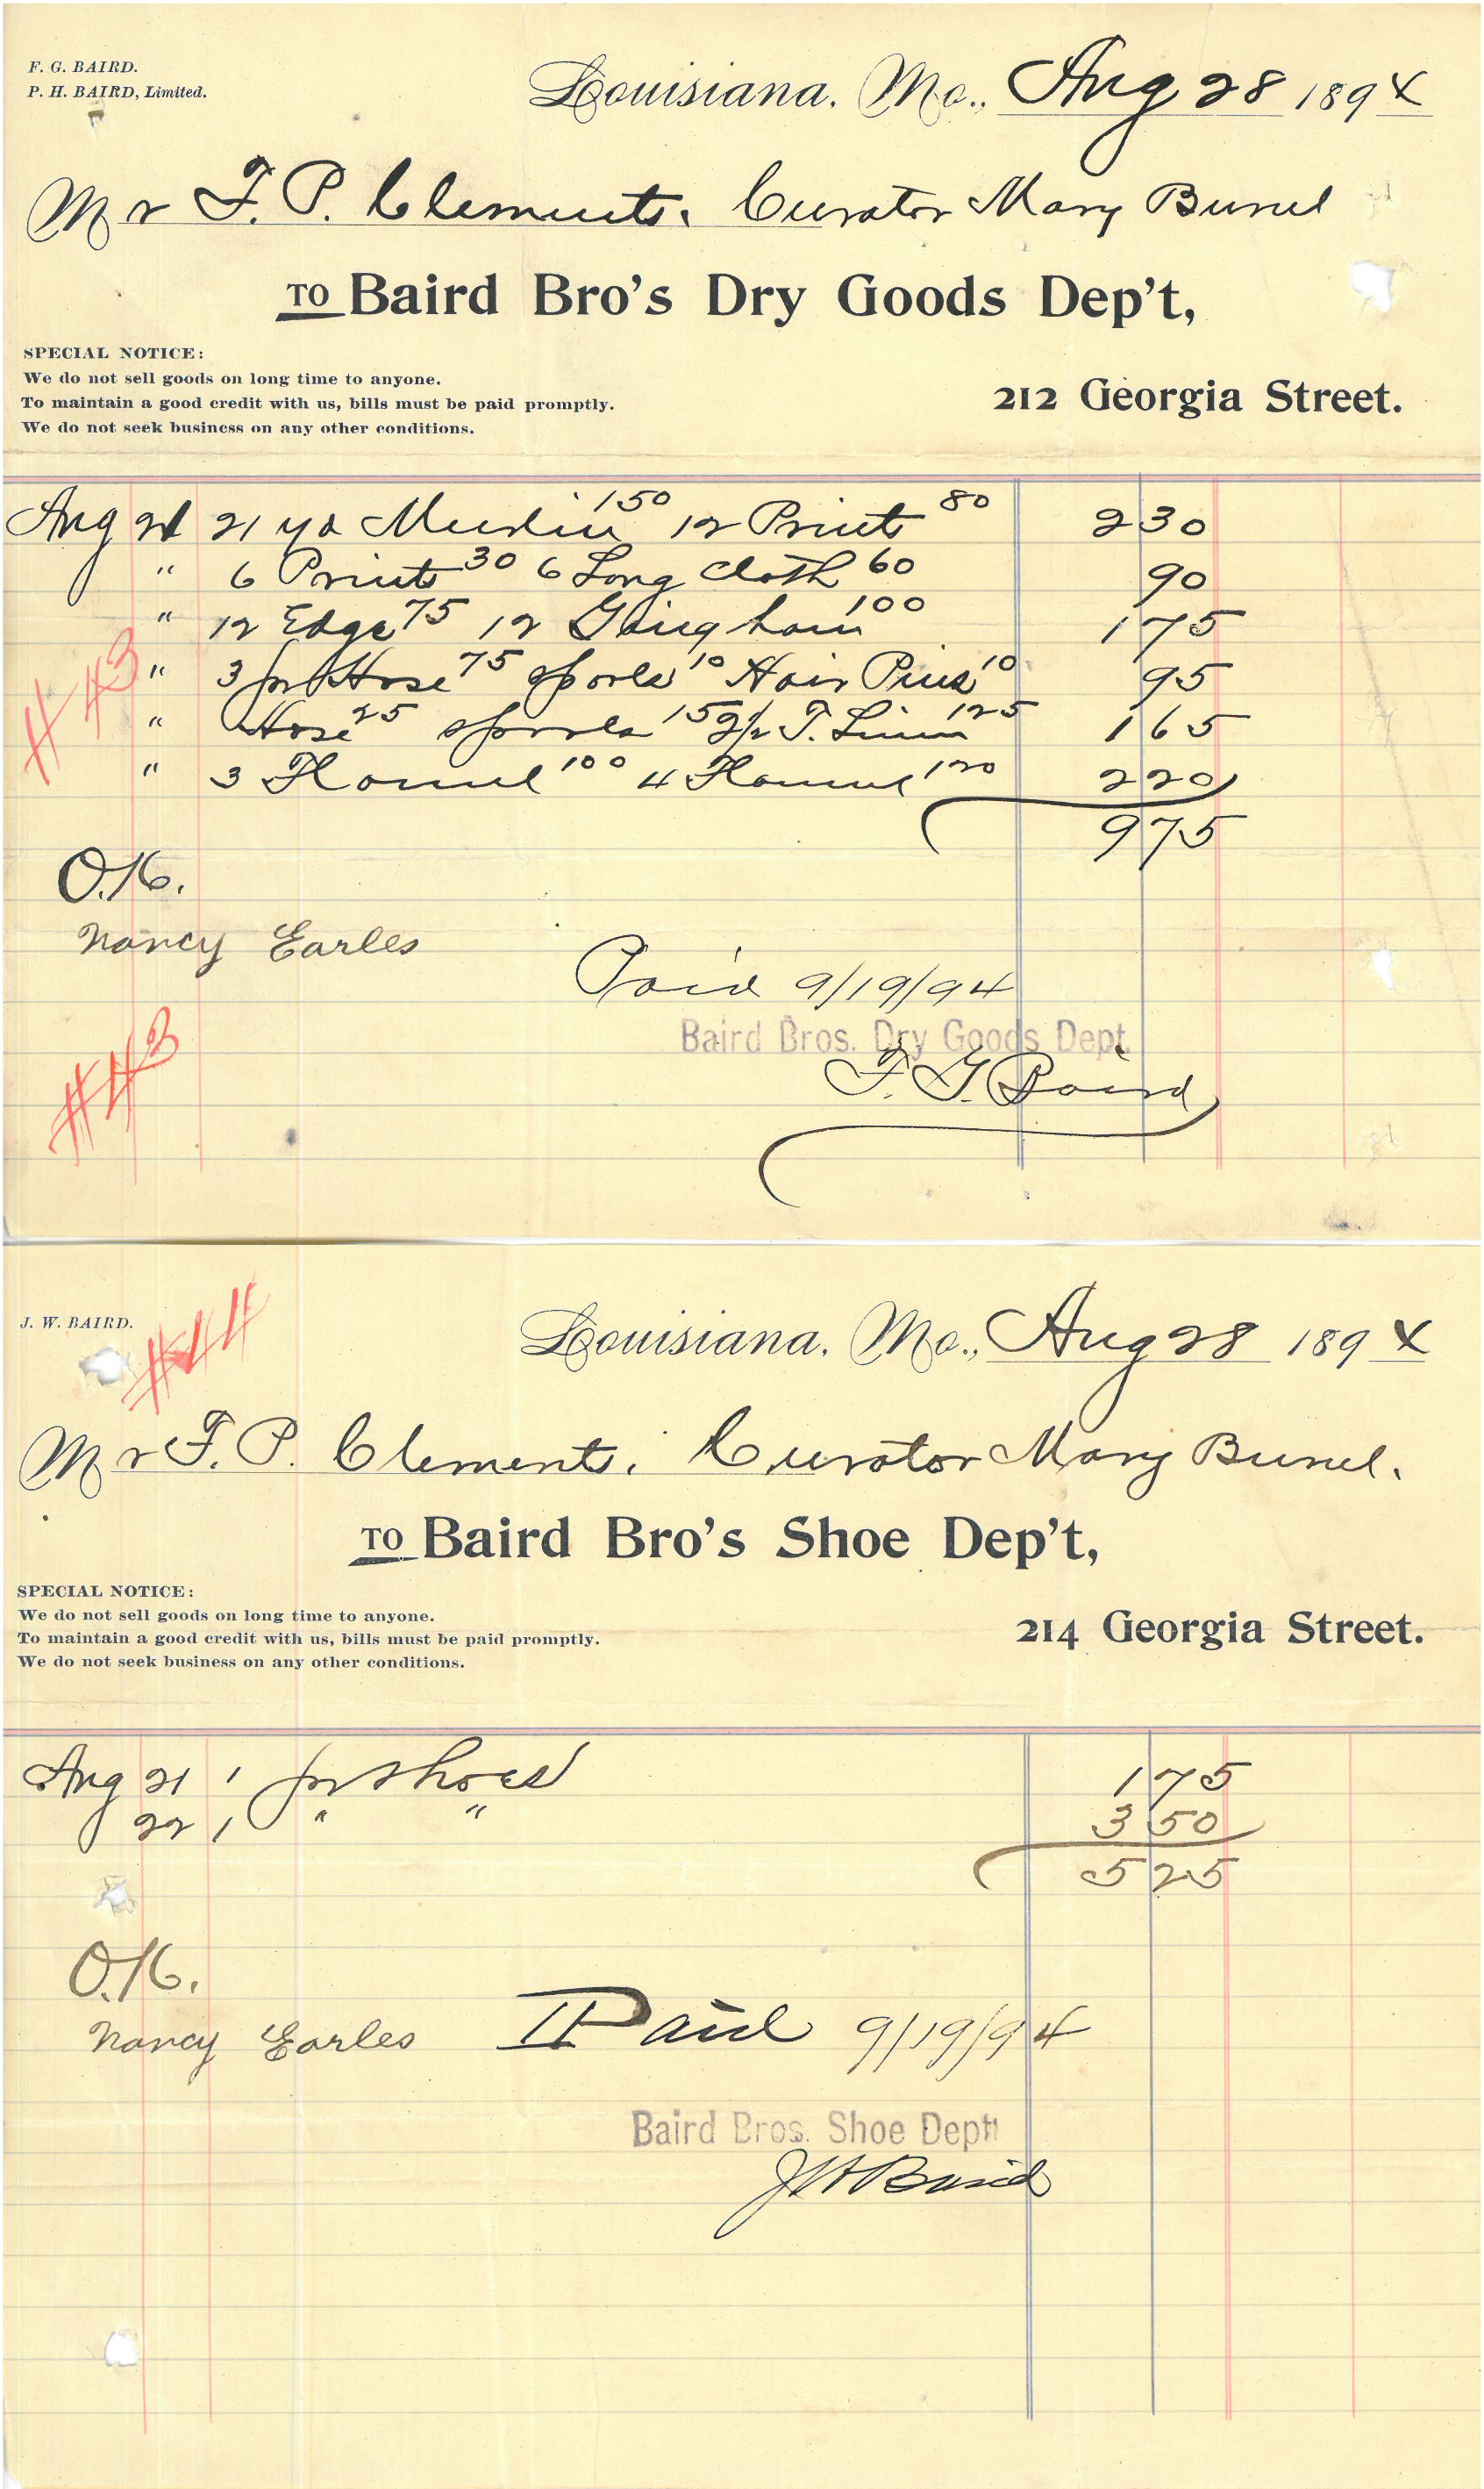 F. G. BAIRD.
P. H. BAIRD, Limited.
Louisiana, Mo., Aug 28 1894
Mr F. P. Clements. Curator Mary Bunel
TO Baird Bro's Dry Goods Dep't,
SPECIAL NOTICE:
We do not sell goods on long time to anyone.
To maintain a good credit with us, bills must be paid promptly.
We do not seek business on any other conditions.
212 Georgia Street.
Aug 21 21 yd Muslin 150 12 Prints 80 2 30
" 6 Prints 30 6 Long Cloth 60 90
" 12 Edge 75 12 Gingham 100 1 75
" 3 pr Hose 75 Spools 10 Hair Pins 10 95
" Hose 25 Spools 15 2 1/2 T. Linen 125 1 65
" 3 Flannel 100 4 Flannel 120 2 20
9 75
#43
O.K.
Nancy Earles
Paid 9/19/94
Baird Bros. Dry Goods Dept.
F. G. Baird
#43
J. W. BAIRD.
#44
Louisiana, Mo., Aug 28 1894
Mr F. P. Clements. Curator Mary Bunel.
TO Baird Bro's Shoe Dep't,
SPECIAL NOTICE:
We do not sell goods on long time to anyone.
To maintain a good credit with us, bills must be paid promptly.
We do not seek business on any other conditions.
214 Georgia Street.
Aug 21 1 pr Shoes 1 75
22 1 " " 3 50
5 25
O.K.
Nancy Earles
Paid 9/19/94
Baird Bros. Shoe Dept.
JW Baird